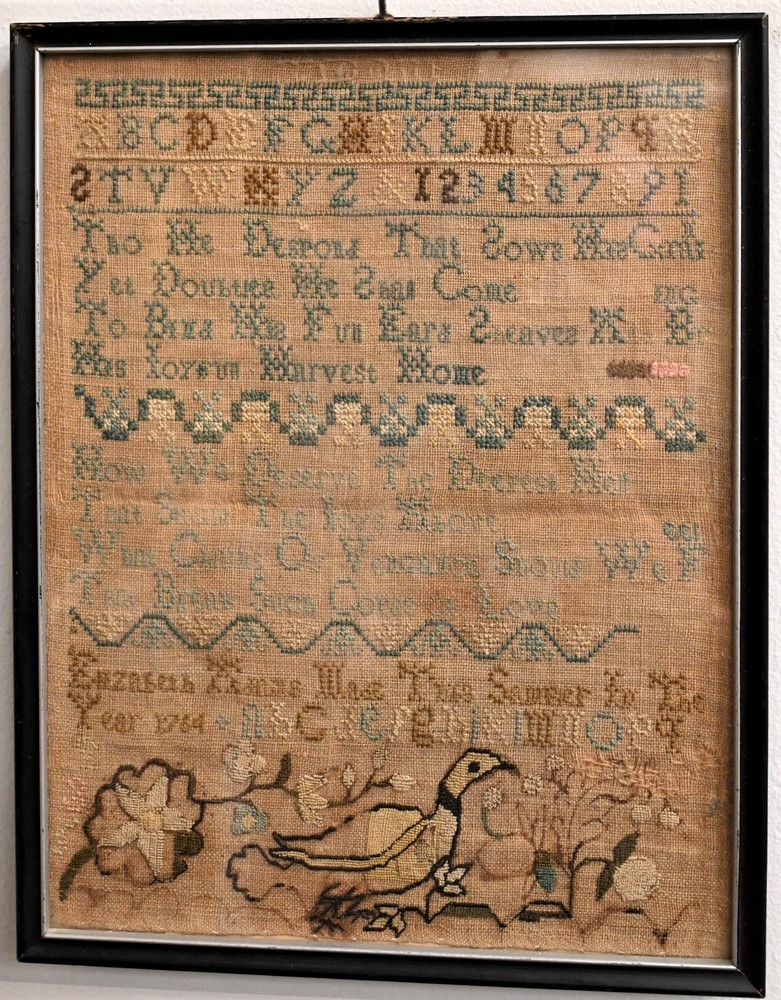 A B C D E F G H I K L M N O P Q R
S T V W X Y Z & 1 2 3 4 5 6 7 8 9 1
Tho He Despond That Sows His
Yet He Come
To Bind His Full Ears Sheaves And Br
ing
His Ioyfull Harvest Home
How We Observe The Het
That The Ioys Above
What Chains Of Vengance Should We F
eel
That Break Such Cords Of Love
Elizabeth Made This Sampler In The
Year 1764 A b C d e f g h i k l M N O P q